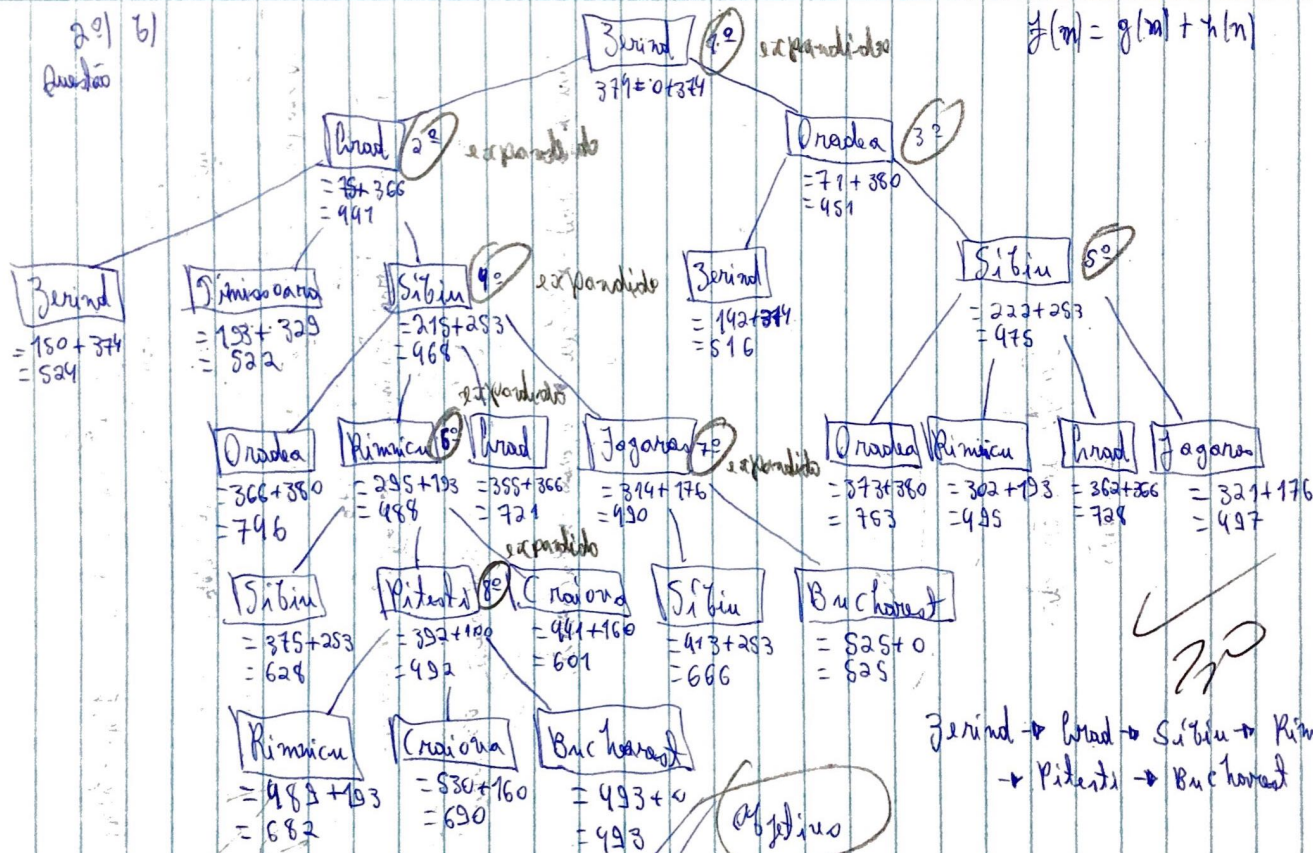 2º) b)
Questão
f(n) = g(n) + h(n)
Zerind 1º
374 = 0+374
Arad 2º
= 75+ 366
= 441
Oradea 3º
= 71 + 380
= 451
Zerind
= 150 + 374
= 524
Timisoara
= 193+ 329
= 522
Sibiu 4º
= 215+253
= 468
Zerind
= 142+374
= 516
Sibiu 5º
= 222+253
= 475
Oradea
= 366+380
= 746
Rimnicu 6º
= 295+193
= 488
Arad
= 355+366
= 721
Fagaras 7º
= 314+176
= 490
Oradea
= 373+380
= 753
Rimnicu
= 302+193
= 495
Arad
= 362+366
= 728
Fagaras
= 321+176
= 497
Sibiu
= 375+253
= 628
Pitesti 8º
= 392+100
= 492
Craiova
= 441+160
= 601
Sibiu
= 413+253
= 666
Bucharest
= 525+0
= 525
Rimnicu
= 489+193
= 682
Craiova
= 530+160
= 690
Bucharest
= 493+0
= 493
Objetivo
Zerind → Arad → Sibiu → Rim
→ Pitesti → Bucharest